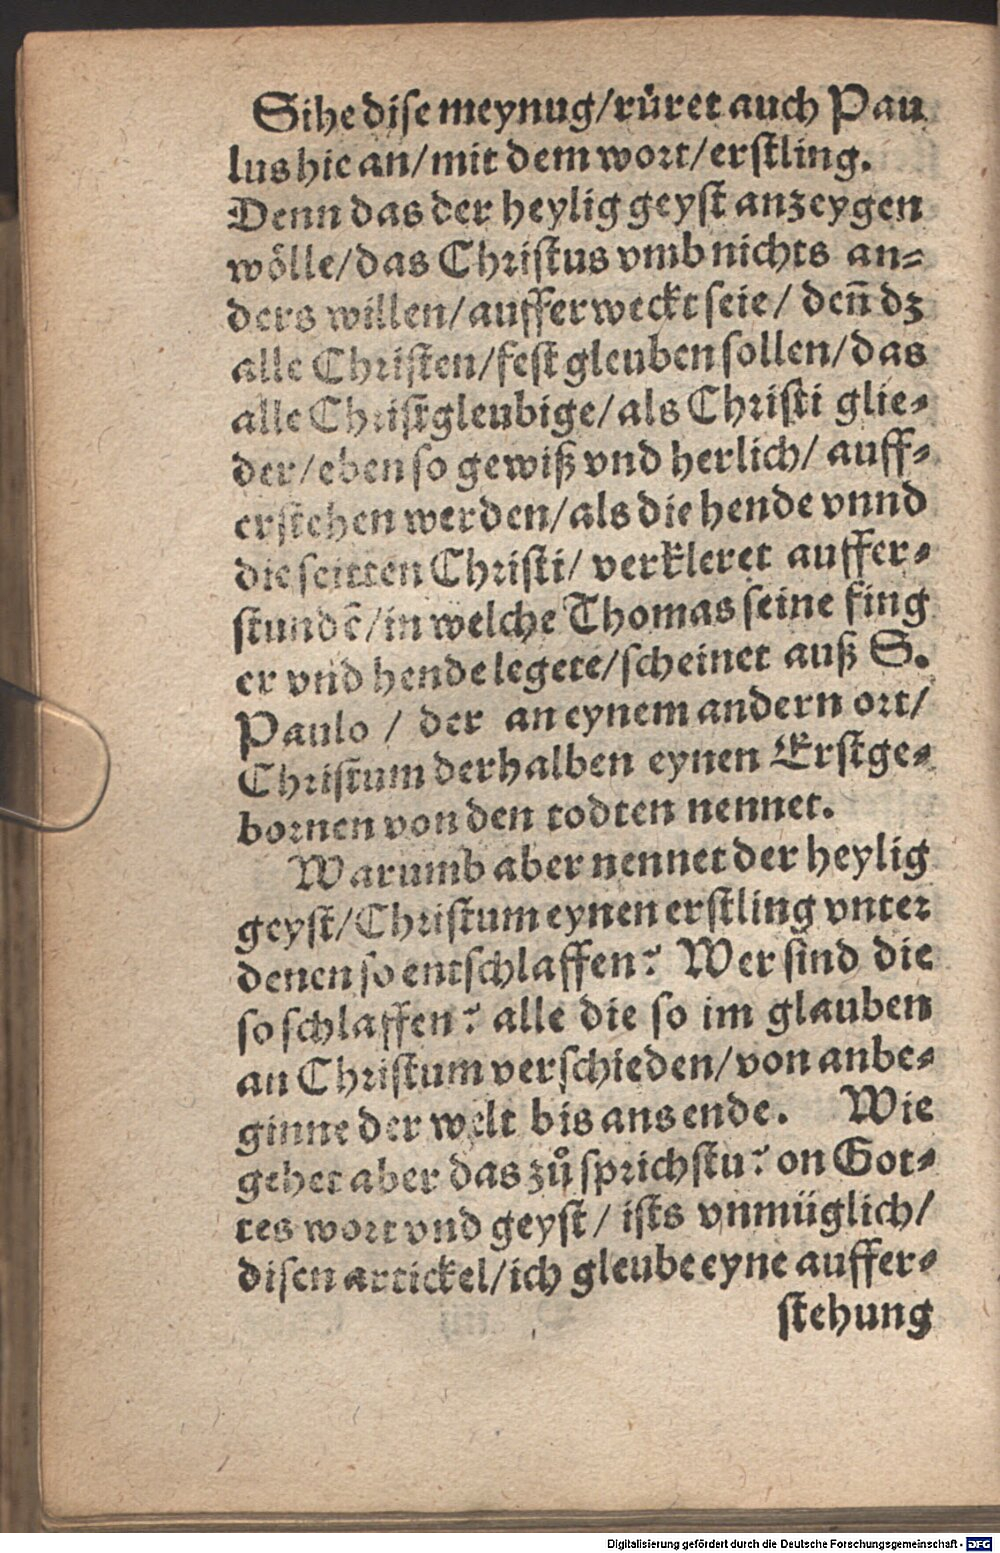 Sihe diſe meynug/růret auch Pau
lus hie an/mit dem wort/erſtling.
Denn das der heylig geyſt anzeygen
wölle/das Chriſtus vmb nichts an⸗
ders willen/aufferweckt ſeie/ deñ dz
alle Chriſten/feſt gleuben ſollen/das
alle Chriſtgleubige/als Chriſti glie⸗
der/eben ſo gewiß vnd herlich/ auff⸗
erſtehen werden/als die hende vnnd
die ſeitten Chriſti/ verkleret auffer⸗
ſtundē/in welche Thomas ſeine fing
er vnd hende legete/ſcheinet auß S.
Paulo / der an eynem andern ort/
Chriſtum derhalben eynen Erſtge⸗
bornen von den todten nennet.
Warumb aber nennet der heylig
geyſt/Chriſtum eynen erſtling vnter
denen ſo entſchlaffen? Wer ſind die
ſo ſchlaffen? alle die ſo im glauben
an Chriſtum verſchieden/von anbe⸗
ginne der welt bis ans ende. Wie
gehet aber das zů ſprichſtu? on Got⸗
tes wort vnd geyſt/ iſts vnmüglich/
diſen artickel/ich gleube eyne auffer⸗
ſtehung
Digitalisierung gefördert durch die Deutsche Forschungsgemeinschaft - DFG